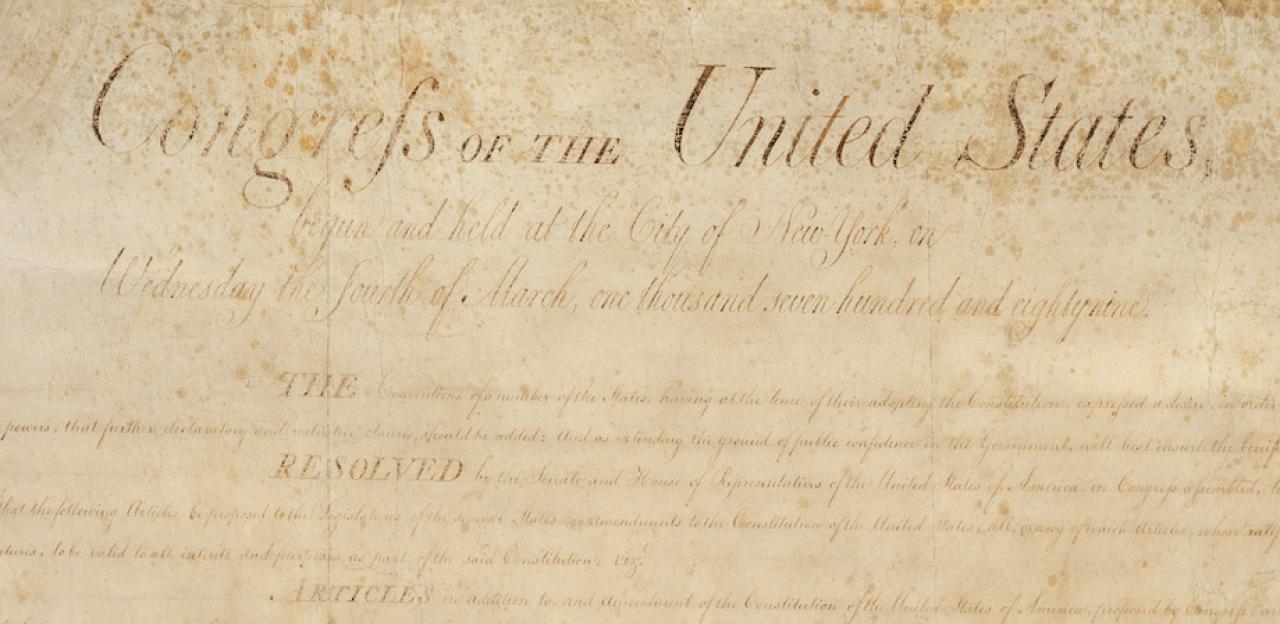 Congreſs OF THE United States,
begun and held at the City of New York, on
Wednesday the fourth of March, one thousand seven hundred and eighty nine.
THE Conventions of a number of the States, having at the time of their adopting the Constitution, expreſsed a desire, in order
powers, that further declaratory and restrictive clauses should be added: And as extending the ground of public confidence in the Government, will best ensure the
RESOLVED by the Senate and House of Representatives of the United States of America, in Congreſs aſsembled,
that the following Articles be proposed to the Legislatures of the several States, as amendments to the Constitution of the United States, all, or any of which Articles, when
to be valid to all intents and purposes, as part of the said Constitution; viz.ᵗ
ARTICLES in addition to, and amendment of the Constitution of the United States of America, proposed by Congreſs